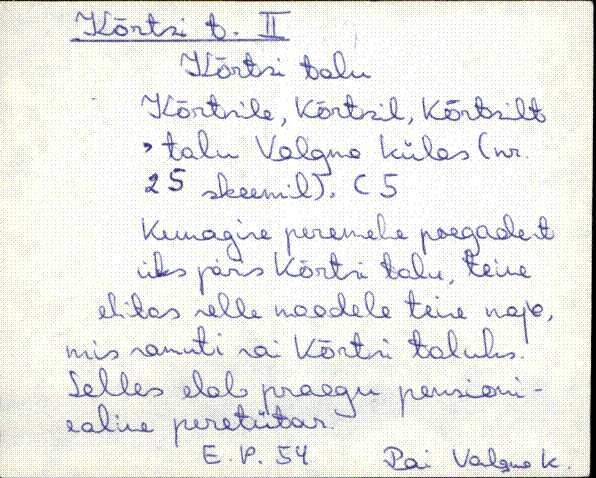 Kõrtsi t. II
Kõrtsi talu
Kõrtsile, Kõrtsil, Kõrtsilt
, talu Valgma külas (nr.
25 skeemil). C 5
Kunagise peremehe poegadest
üks päris Kõrtsi talu, teine
ehitas selle naadele teise maja,
mis samuti sai Kõrtsi taluks.
Selles elab praegu pensioni-
ealine peretütar.
E.P. 54 Pai Valgma k.